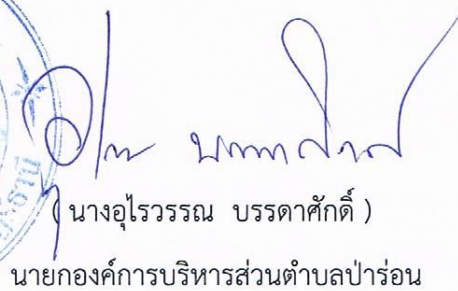 ( นางอุไรวรรณ บรรดาศักดิ์ )
นายกองค์การบริหารส่วนตำบลป่าร่อน